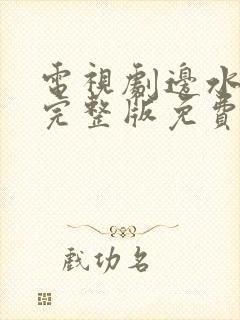 電視劇邊水
完整版免費
戲功名